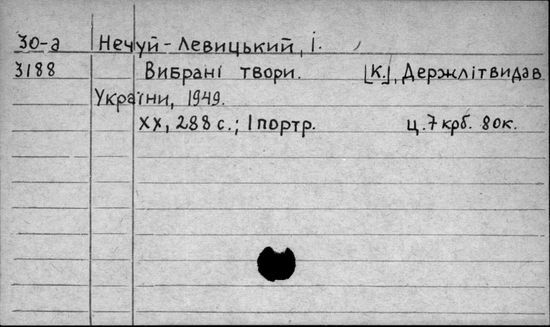 30-а Нечуй-Левицький, І.
3188 Вибрані твори. [К.], Держлітвидав
України, 1949.
XX, 288 с.; 1 портр. ц. 7 крб. 80к.